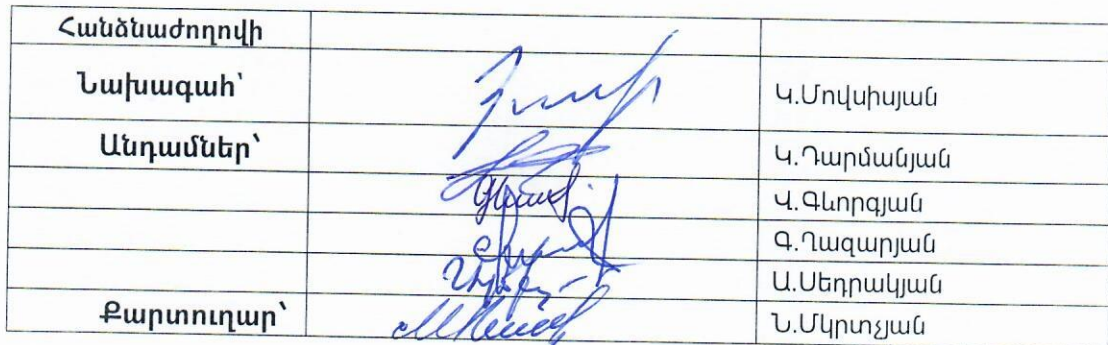 Հանձնաժողովի
Նախագահ՝ Կ.Մովսիսյան
Անդամներ՝ Կ.Դարմանյան
Վ.Գևորգյան
Գ.Ղազարյան
Ա.Սեդրակյան
Քարտուղար՝ Ն.Մկրտչյան